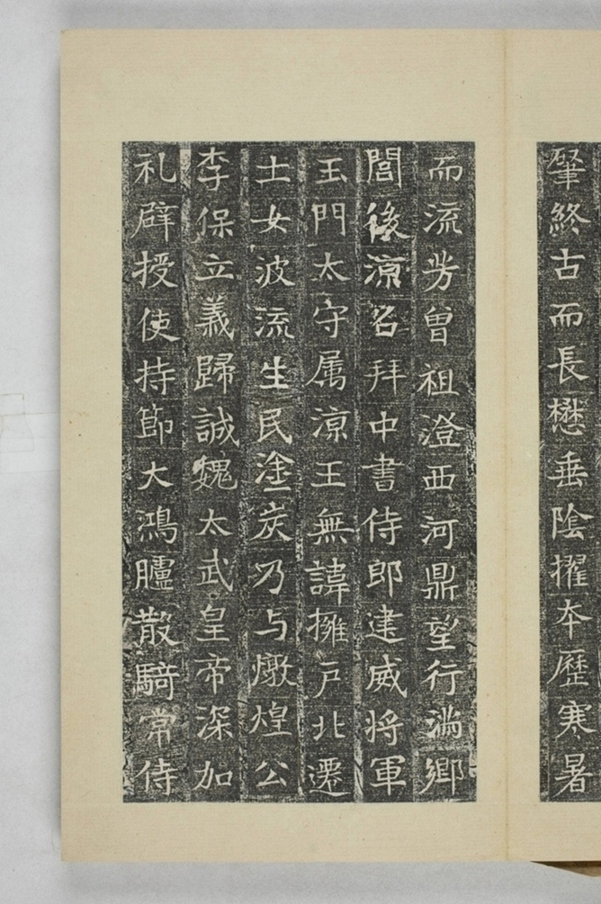 肈終古而長懋垂陰擢本歷寒暑
而流芳曾祖澄西河鼎望行滿鄉
閭後涼召拜中書侍郎建威將軍
玉門太守属涼王無諱擁戶北遷
士女波流生民塗炭乃与燉煌公
李保立義歸誠魏太武皇帝深加
礼辟授使持節大鴻臚散騎常侍